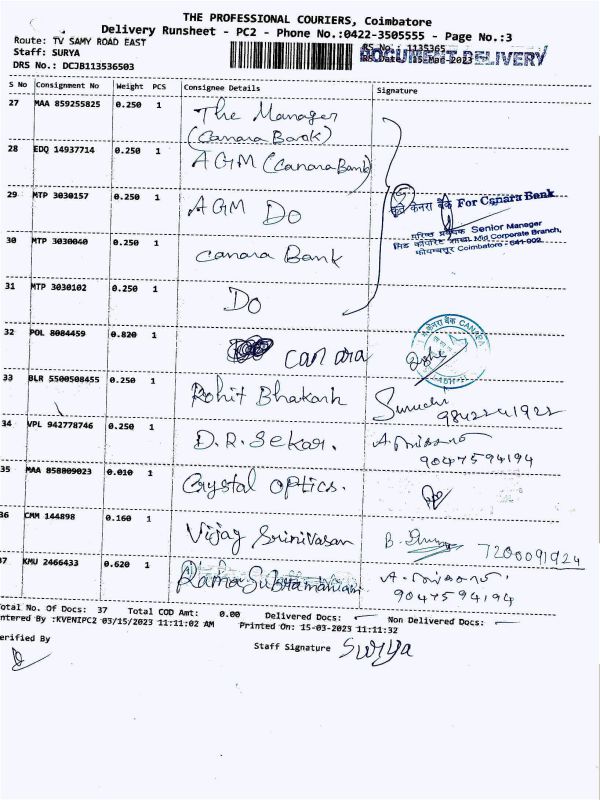 THE PROFESSIONAL COURIERS, Coimbatore
Delivery Runsheet - PC2 - Phone No.:0422-3505555 - Page No.:3
Route: TV SAMY ROAD EAST
Staff: SURYA
DRS No.: DCJB113536503
RS No.: 1135365
RS Date: 15-Mar-2023
DOCUMENT DELIVERY
S No Consignment No Weight PCS Consignee Details Signature
27 MAA 859255825 0.250 1 The Manager
(Canara Bank)
28 EDQ 14937714 0.250 1 AGM (Canara Bank)
29 MTP 3030157 0.250 1 AGM Do
कृते केनरा बैंक For Canara Bank
वरिष्ठ प्रबंधक Senior Manager
मिड कॉर्पोरेट शाखा Mid Corporate Branch,
कोयम्बत्तूर Coimbatore - 641 002
30 MTP 3030040 0.250 1 Canara Bank
31 MTP 3030102 0.250 1 Do
32 POL 8084459 0.820 1 canara
केनरा बैंक CANARA
33 BLR 5500508455 0.250 1 Rohit Bhakash
Suruchi
9842241922
34 VPL 942778746 0.250 1 D.R. Sekar.
9047594194
35 MAA 858809023 0.010 1 Crystal optics.
36 CMM 144898 0.160 1 Vijay Srinivasan B. 7200091924
37 KMU 2466433 0.620 1 Rama Subramanian
9047594194
Total No. Of Docs: 37 Total COD Amt: 0.00 Delivered Docs: Non Delivered Docs:
Entered By :KVENIPC2 03/15/2023 11:11:02 AM Printed On: 15-03-2023 11:11:32
Verified By
Staff Signature Surya